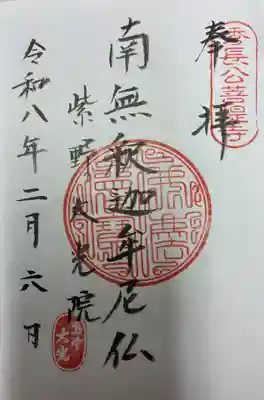 奉拝
秀長公菩提寺
南無釈迦牟尼仏
紫野大光院
令和八年二月六日